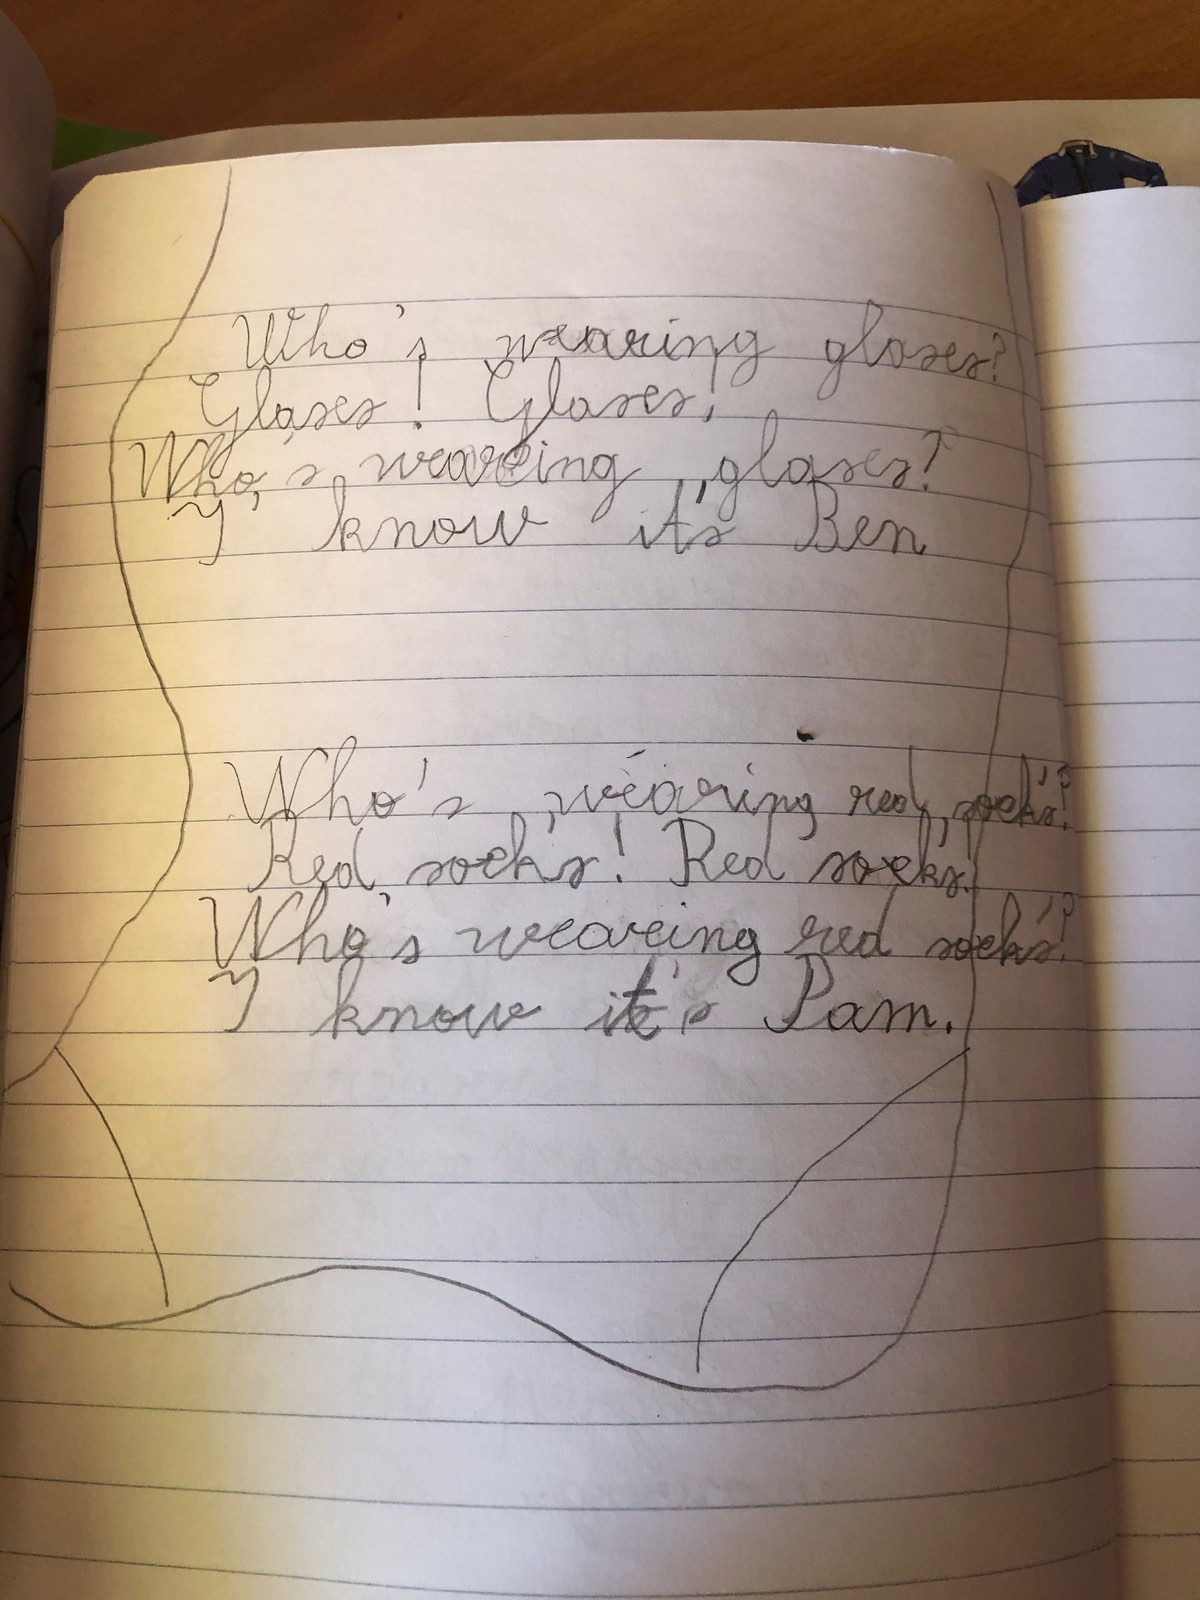 Who's wearing glases?
Glases! Glases!
Who's wearing glases?
I know it's Ben
Who's wearing red socks?
Red socks! Red socks!
Who's wearing red socks?
I know it's Pam.